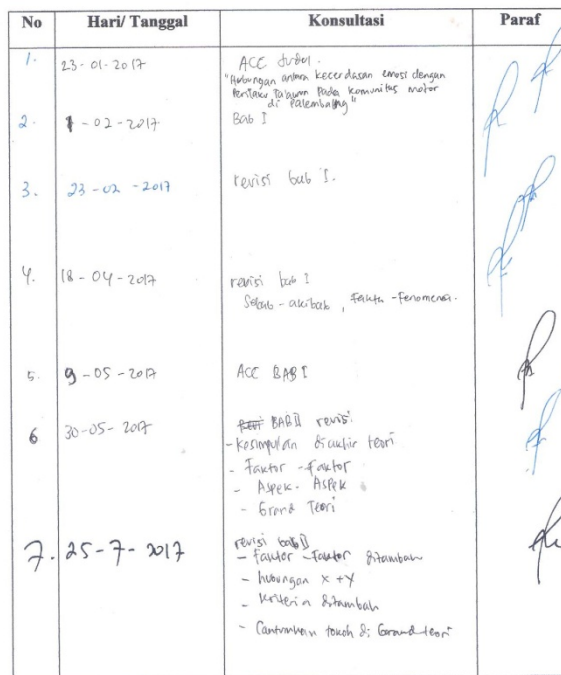 No Hari/ Tanggal Konsultasi Paraf
1. 23-01-2017 ACC Judul.
"Hubungan antara kecerdasan emosi dengan
Perilaku Ta'awun Pada komunitas motor
di Palembang"
2. 1-02-2017 Bab I
3. 23-02-2017 revisi bab I.
4. 18-04-2017 revisi bab I
Sebab-akibat, Fakta-Fenomena.
5. 9-05-2017 ACC BAB I
6 30-05-2017 BAB II revisi
- kesimpulan diakhir teori
- Faktor-faktor
- Aspek-Aspek
- Grand Teori
7. 25-7-2017 revisi bab II
- Faktor-faktor ditambah
- hubungan x + y
- kriteria ditambah
- Cantumkan tokoh di Grand teori